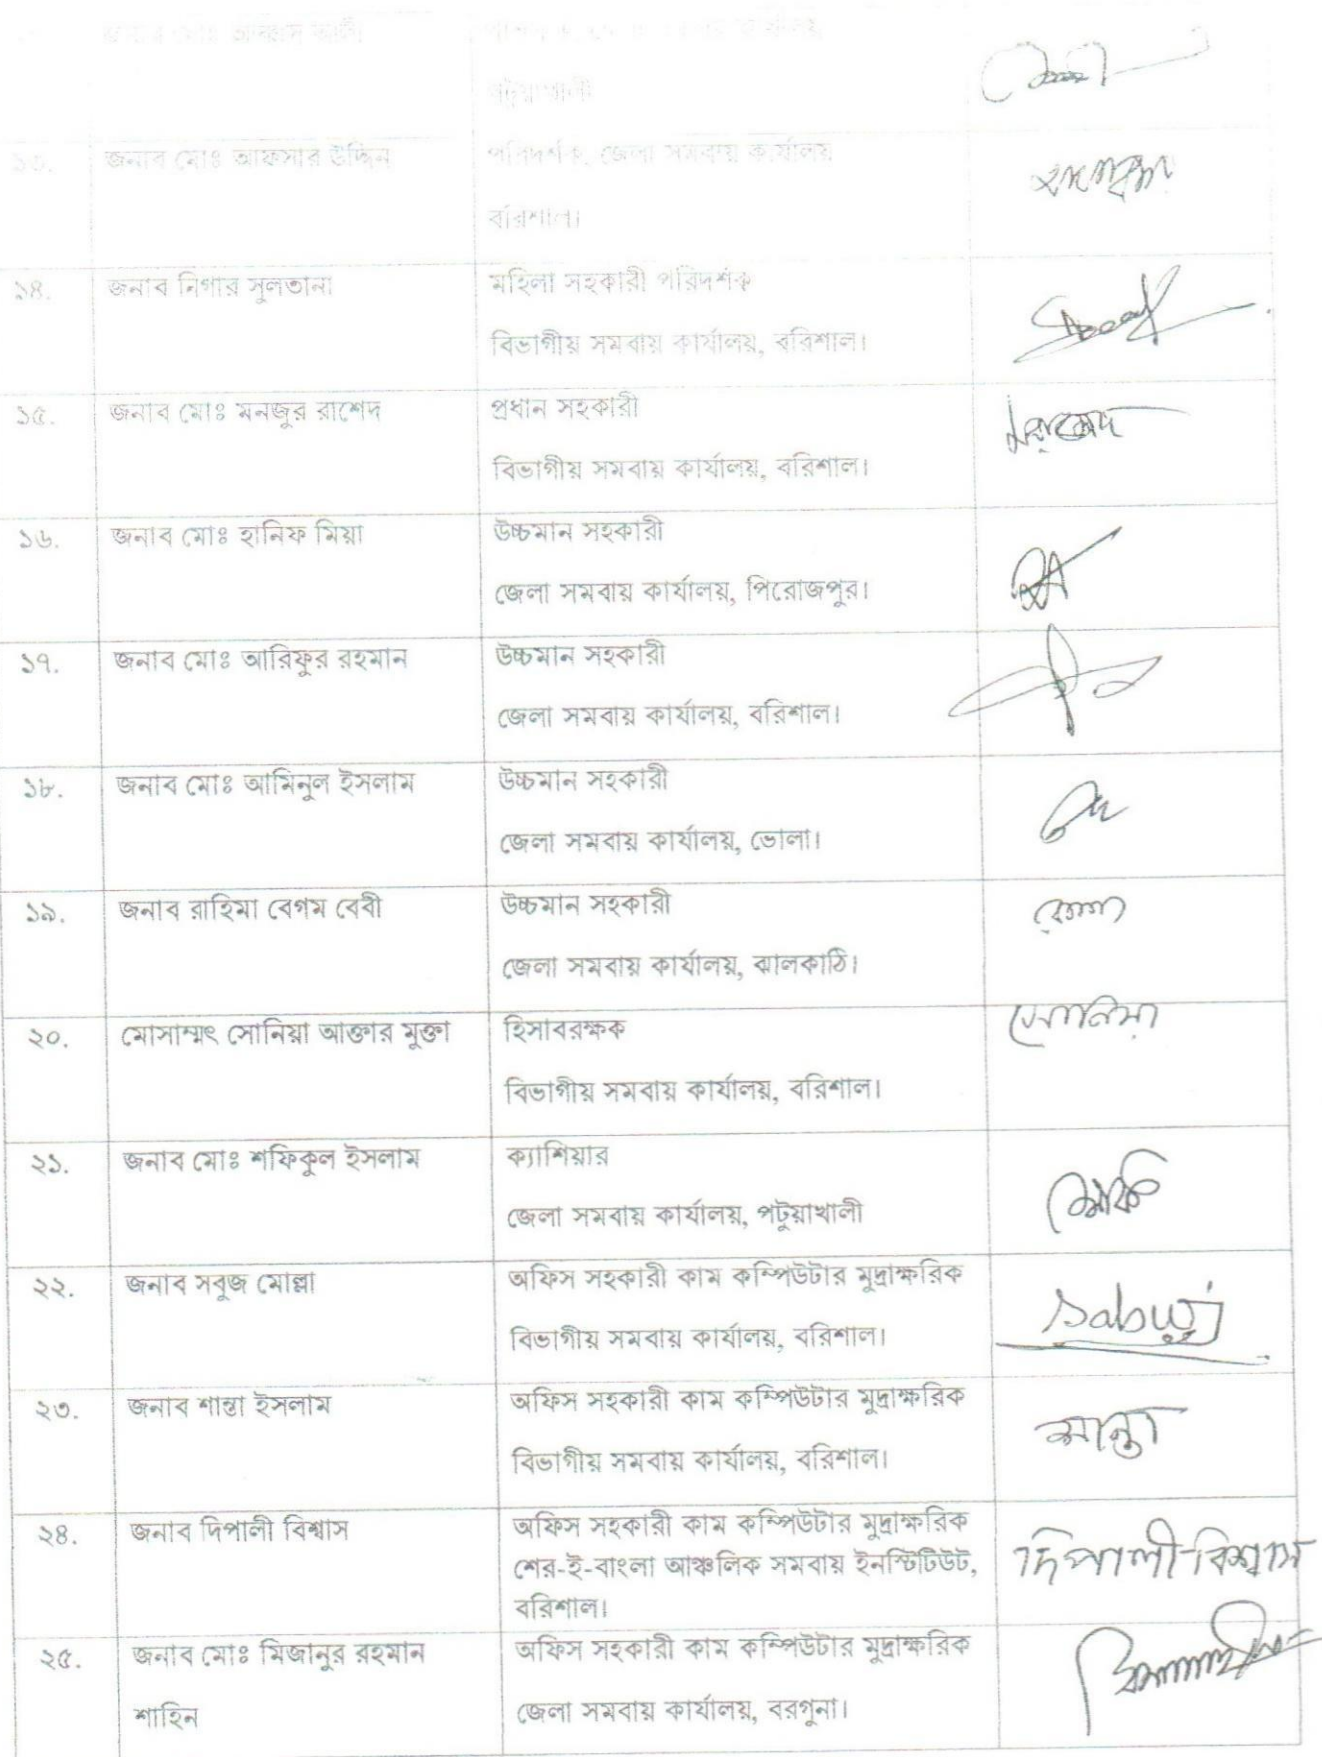 জনাব মোঃ
পটুয়াখালী
১৩. জনাব মোঃ আফসার উদ্দিন পরিদর্শক, জেলা সমবায় কার্যালয়
বরিশাল।
১৪. জনাব নিগার সুলতানা মহিলা সহকারী পরিদর্শক
বিভাগীয় সমবায় কার্যালয়, বরিশাল।
১৫. জনাব মোঃ মনজুর রাশেদ প্রধান সহকারী
বিভাগীয় সমবায় কার্যালয়, বরিশাল।
১৬. জনাব মোঃ হানিফ মিয়া উচ্চমান সহকারী
জেলা সমবায় কার্যালয়, পিরোজপুর।
১৭. জনাব মোঃ আরিফুর রহমান উচ্চমান সহকারী
জেলা সমবায় কার্যালয়, বরিশাল।
১৮. জনাব মোঃ আমিনুল ইসলাম উচ্চমান সহকারী
জেলা সমবায় কার্যালয়, ভোলা।
১৯. জনাব রাহিমা বেগম বেবী উচ্চমান সহকারী
জেলা সমবায় কার্যালয়, ঝালকাঠি।
২০. মোসাম্মৎ সোনিয়া আক্তার মুক্তা হিসাবরক্ষক সোনিয়া
বিভাগীয় সমবায় কার্যালয়, বরিশাল।
২১. জনাব মোঃ শফিকুল ইসলাম ক্যাশিয়ার
জেলা সমবায় কার্যালয়, পটুয়াখালী
২২. জনাব সবুজ মোল্লা অফিস সহকারী কাম কম্পিউটার মুদ্রাক্ষরিক Sabuj
বিভাগীয় সমবায় কার্যালয়, বরিশাল।
২৩. জনাব শান্তা ইসলাম অফিস সহকারী কাম কম্পিউটার মুদ্রাক্ষরিক শান্তা
বিভাগীয় সমবায় কার্যালয়, বরিশাল।
২৪. জনাব দিপালী বিশ্বাস অফিস সহকারী কাম কম্পিউটার মুদ্রাক্ষরিক দিপালী বিশ্বাস
শের-ই-বাংলা আঞ্চলিক সমবায় ইনস্টিটিউট,
বরিশাল।
২৫. জনাব মোঃ মিজানুর রহমান অফিস সহকারী কাম কম্পিউটার মুদ্রাক্ষরিক
শাহিন জেলা সমবায় কার্যালয়, বরগুনা।